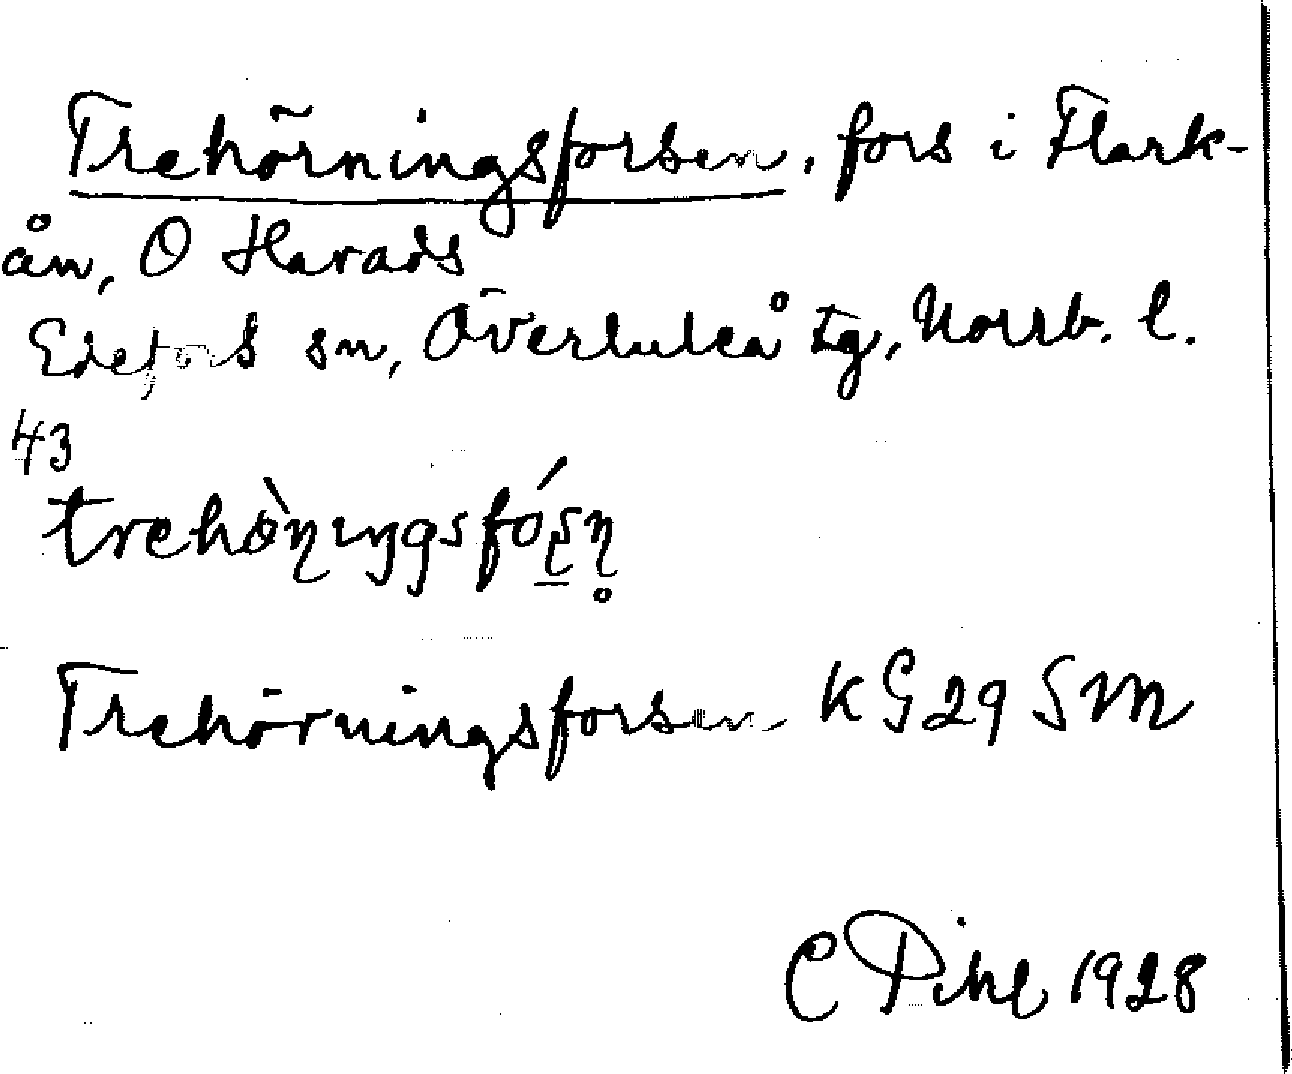 Trehörningsforsen, fors i Flark-
ån, O Harads
Edefors sn, Överluleå tg, Norrb. l.
43
trehὼ̀ɳıŋgsfó̱ʂɳ̥
Trehörningsforsen KG29SM
C Pihl 1928